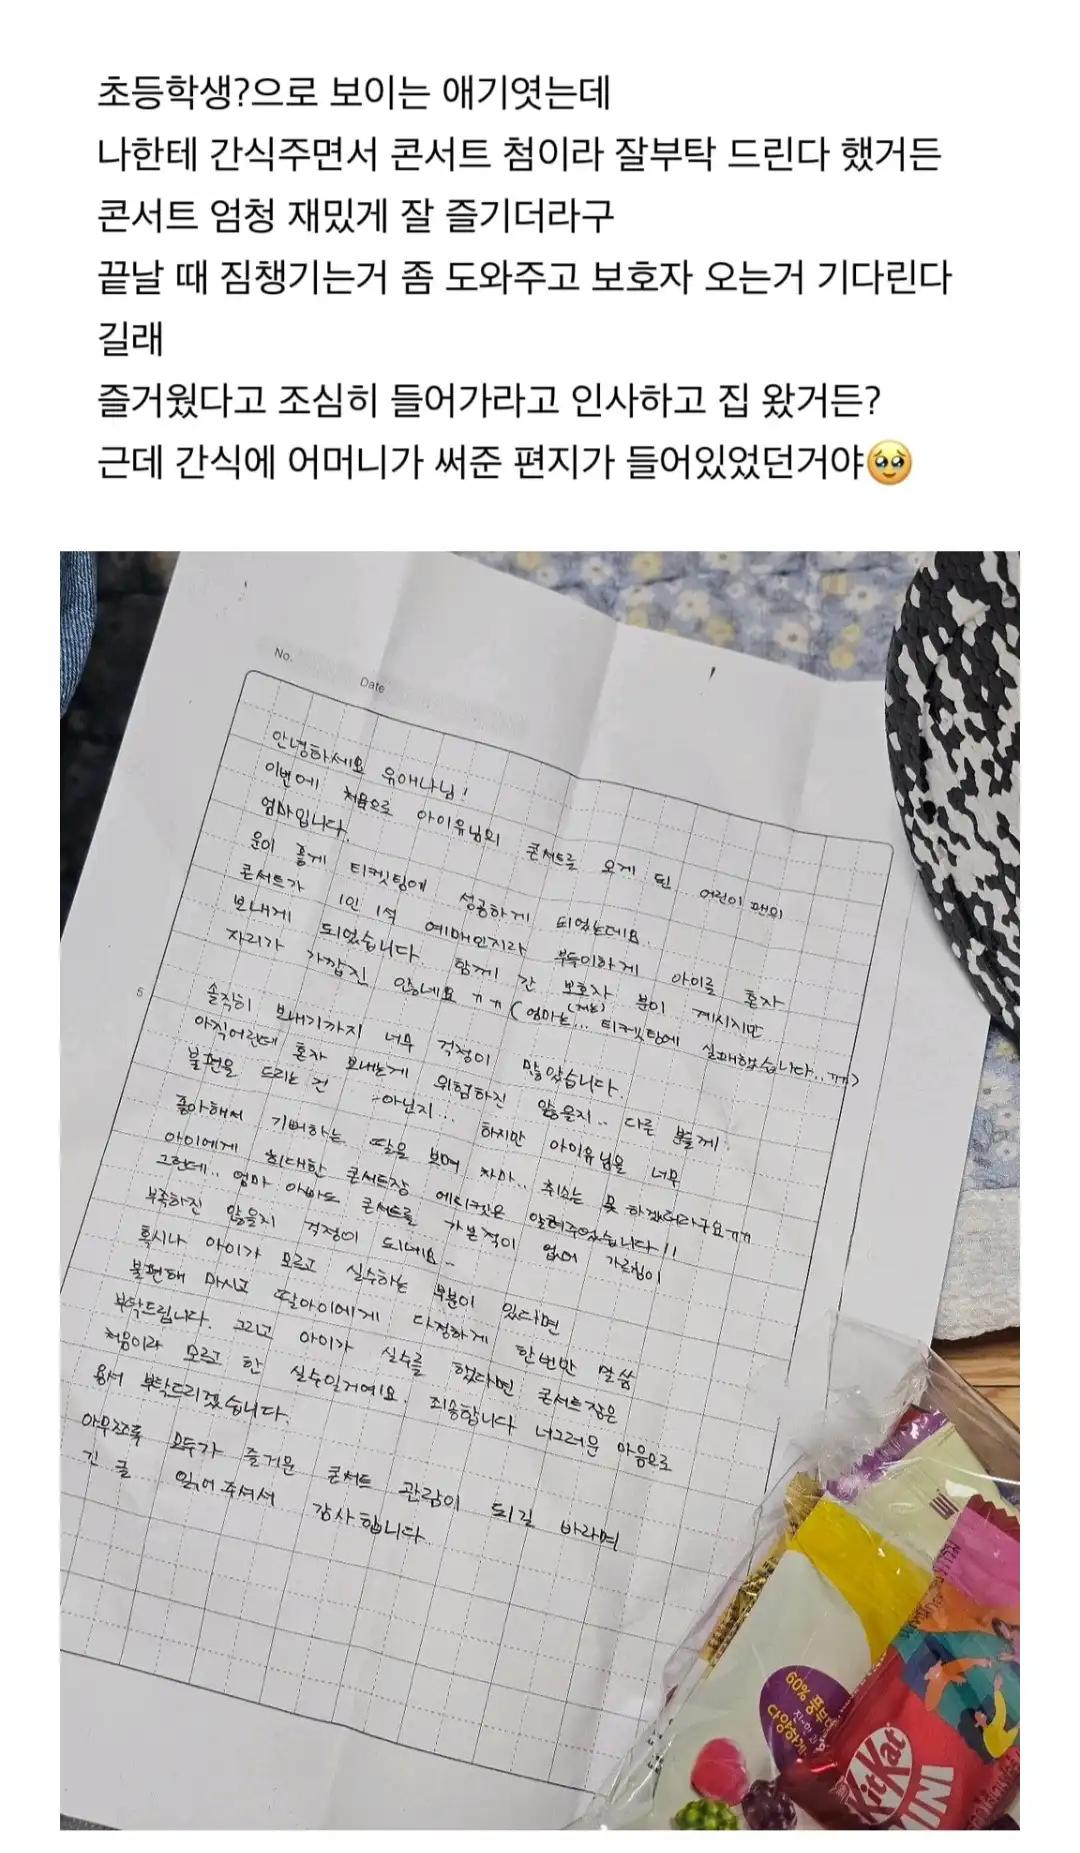 초등학생?으로 보이는 애기엿는데
나한테 간식주면서 콘서트 첨이라 잘부탁 드린다 했거든
콘서트 엄청 재밌게 잘 즐기더라구
끝날 때 짐챙기는거 좀 도와주고 보호자 오는거 기다린다
길래
즐거웠다고 조심히 들어가라고 인사하고 집 왔거든?
근데 간식에 어머니가 써준 편지가 들어있었던거야🥹
No.
Date
안녕하세요 유애나님!
이번에 처음으로 아이유님의 콘서트를 오게 된 어린이 팬의
엄마입니다.
운이 좋게 티켓팅에 성공하게 되었는데요.
콘서트가 1인 1석 예매인지라 부득이하게 아이를 혼자
보내게 되었습니다. 함께 간 보호자 분이 계시지만
자리가 가깝진 않네요 ㅠㅠ (엄마는(저는)... 티켓팅에 실패했습니다..ㅠㅠ)
5
솔직히 보내기까지 너무 걱정이 많았습니다.
아직어린데 혼자 보내는게 위험하진 않을지.. 다른 분들께
불편을 드리는 건 아닌지.. 하지만 아이유님을 너무
좋아해서 기뻐하는 딸을 보며 차마.. 취소는 못 하겠더라구요ㅠㅠ
아이에게 최대한 콘서트장 에티켓은 알려주었습니다!!
그런데.. 엄마 아빠도 콘서트를 가본적이 없어 가르침이
부족하진 않을지 걱정이 되네요..
혹시나 아이가 모르고 실수하는 부분이 있다면
불편해 마시고 딸아이에게 다정하게 한번만 말씀
부탁드립니다. 그리고 아이가 실수를 했다면 콘서트장은
처음이라 모르고 한 실수일거예요. 죄송합니다 너그러운 마음으로
용서 부탁드리겠습니다.
아무쪼록 모두가 즐거운 콘서트 관람이 되길 바라며
긴 글 읽어주셔서 감사합니다.
60%
KitKat
MINI